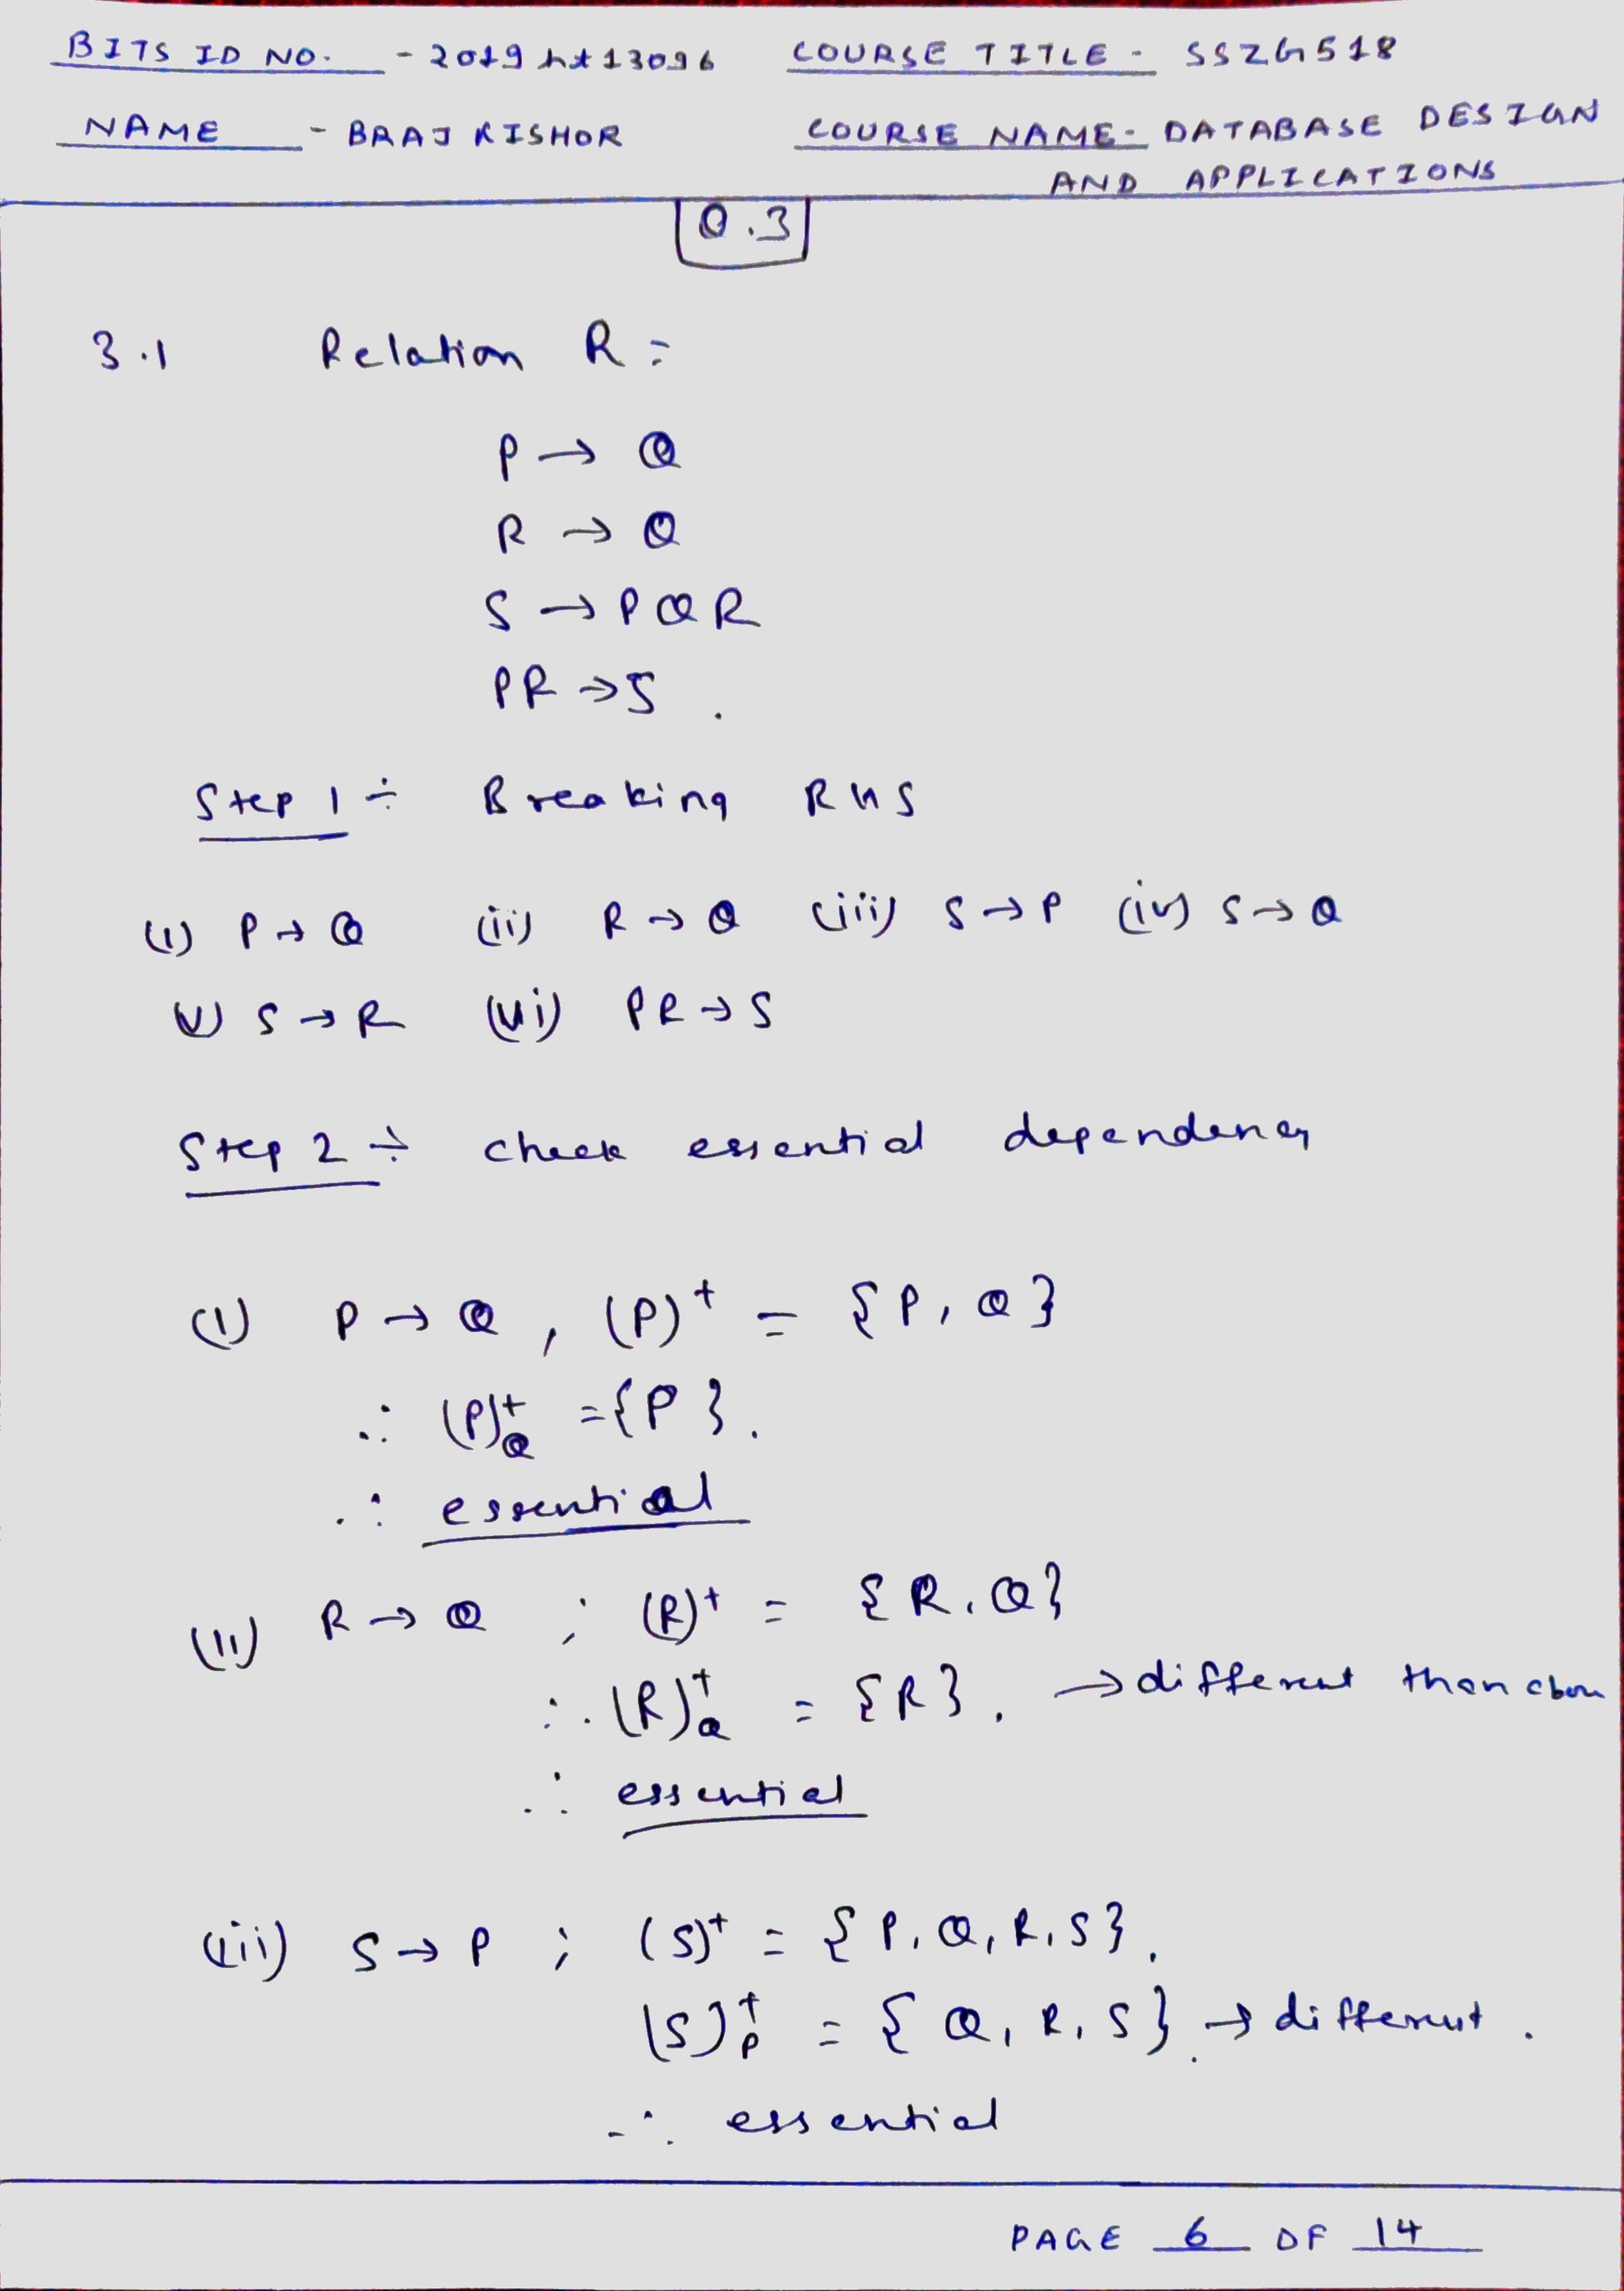 BITS ID NO. - 2019ht13096 COURSE TITLE - SSZG518
NAME - BRAJ KISHOR COURSE NAME- DATABASE DESIGN
AND APPLICATIONS
Q.3
3.1 Relation R =
P → Q
R → Q
S → PQR
PR → S .
Step 1 ÷ Breaking RHS
(i) P → Q (ii) R → Q (iii) S → P (iv) S → Q
(v) S → R (vi) PR → S
Step 2 ÷ check essential dependency
(i) P → Q , (P)⁺ = {P, Q}
∴ (P)⁺Q = {P}.
∴ essential
(ii) R → Q ; (R)⁺ = {R, Q}
∴ (R)⁺Q = {R}. → different than above
∴ essential
(iii) S → P ; (S)⁺ = {P, Q, R, S}.
(S)⁺P = {Q, R, S}. → different .
∴ essential
PAGE 6 OF 14